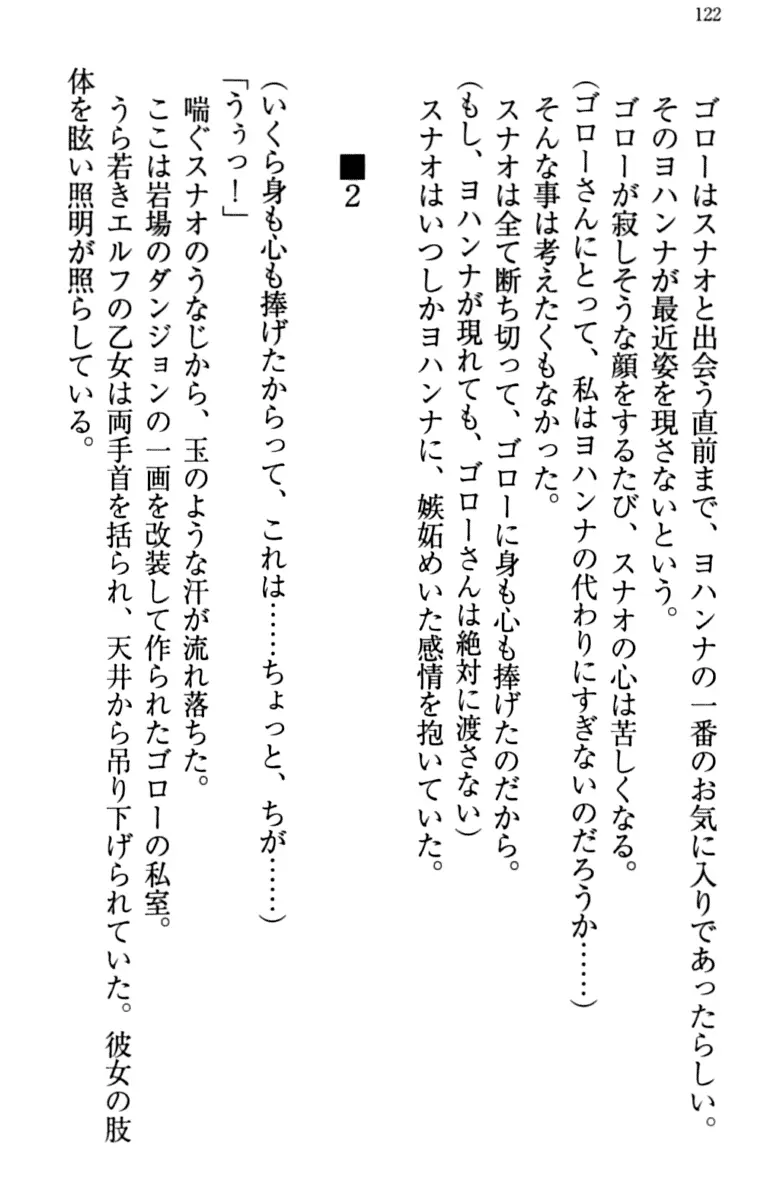 122
ゴローはスナオと出会う直前まで、ヨハンナの一番のお気に入りであったらしい。
そのヨハンナが最近姿を現さないという。
ゴローが寂しそうな顔をするたび、スナオの心は苦しくなる。
(ゴローさんにとって、私はヨハンナの代わりにすぎないのだろうか……)
そんな事は考えたくもなかった。
スナオは全て断ち切って、ゴローに身も心も捧げたのだから。
(もし、ヨハンナが現れても、ゴローさんは絶対に渡さない)
スナオはいつしかヨハンナに、嫉妬めいた感情を抱いていた。
■2
(いくら身も心も捧げたからって、これは……ちょっと、ちが……)
「うぅっ！」
喘ぐスナオのうなじから、玉のような汗が流れ落ちた。
ここは岩場のダンジョンの一画を改装して作られたゴローの私室。
うら若きエルフの乙女は両手首を括られ、天井から吊り下げられていた。彼女の肢
体を眩い照明が照らしている。